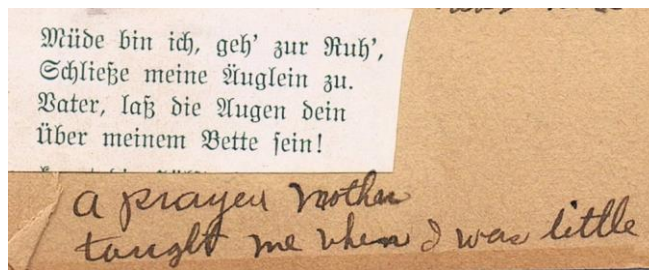 Müde bin ich, geh' zur Ruh',
Schließe meine Äuglein zu.
Vater, laß die Augen dein
Über meinem Bette sein!
a prayer mother
taught me when I was little